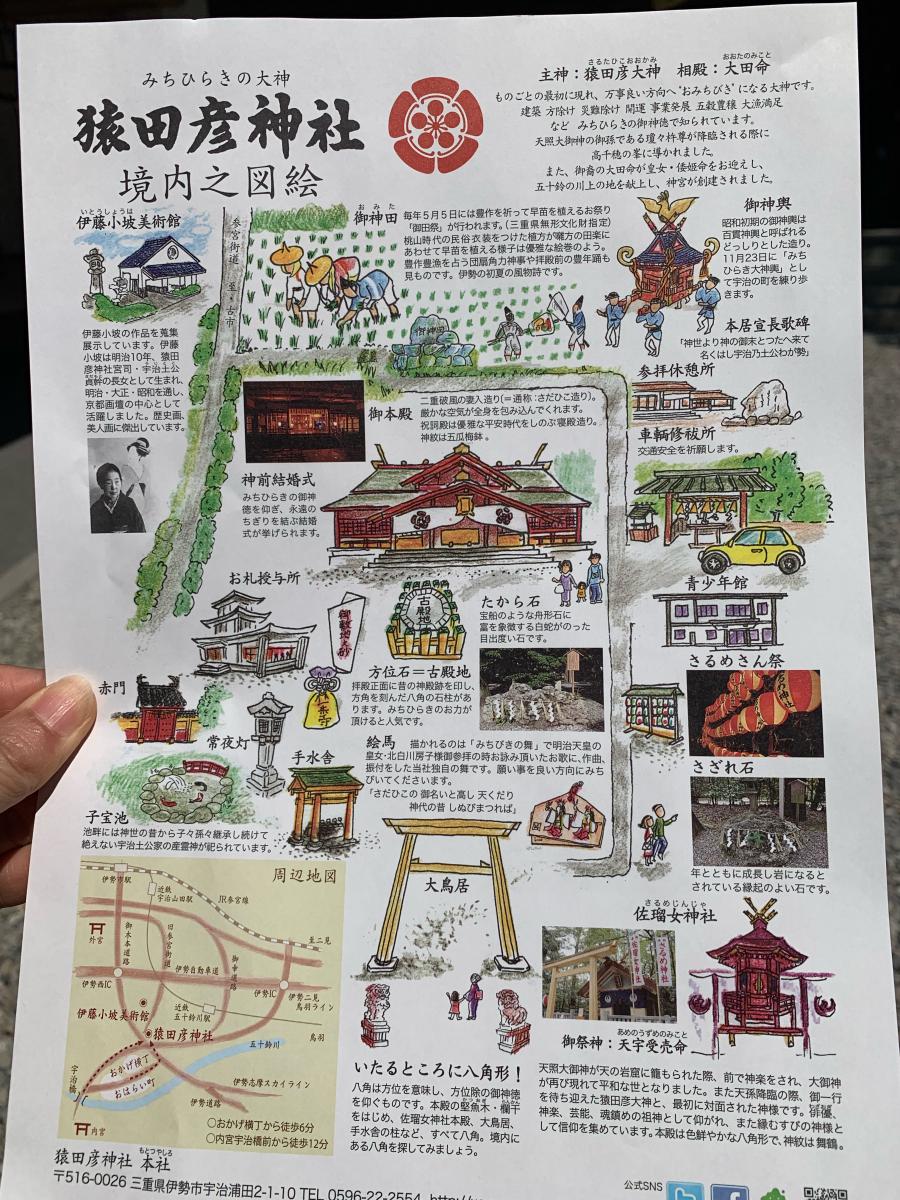 みちひらきの大神
猿田彦神社
境内之図絵
さるたひこおおかみ おおたのみこと
主神：猿田彦大神 相殿：大田命
ものごとの最初に現れ、万事良い方向へ“おみちびき”になる大神です。
建築 方除け 災難除け 開運 事業発展 五穀豊穣 大漁満足
など みちひらきの御神徳で知られています。
天照大御神の御孫である瓊々杵尊が降臨される際に
高千穂の峯に導かれました。
また、御裔の大田命が皇女・倭姫命をお迎えし、
五十鈴の川上の地を献上し、神宮が創建されました。
いとうしょうは
伊藤小坡美術館
伊藤小坡の作品を蒐集
展示しています。伊藤
小坡は明治10年、猿田
彦神社宮司・宇治土公
貞幹の長女として生まれ、
明治・大正・昭和を通し、
京都画壇の中心として
活躍しました。歴史画、
美人画に傑出しています。
参宮街道
至・古市
おみた
御神田
毎年5月5日には豊作を祈って早苗を植えるお祭り
「御田祭」が行われます。（三重県無形文化財指定）
桃山時代の民俗衣装をつけた植方が囃方の田楽に
あわせて早苗を植える様子は優雅な絵巻のよう。
豊作豊漁を占う団扇角力神事や拝殿前の豊年踊も
見ものです。伊勢の初夏の風物詩です。
御神田
御神輿
昭和初期の御神輿は
百貫神輿と呼ばれる
どっしりとした造り。
11月23日に「みち
ひらき大神輿」とし
て宇治の町を練り歩
きます。
本居宣長歌碑
「神世より神の御末とつたへ来て
名くはし宇治乃土公わが勢」
参拝休憩所
車輌修祓所
交通安全を祈願します。
御本殿
二重破風の妻入り造り（＝通称：さだひこ造り）。
厳かな空気が全身を包み込んでくれます。
祝詞殿は優雅な平安時代をしのぶ寝殿造り。
神紋は五瓜梅鉢 。
神前結婚式
みちひらきの御神
徳を仰ぎ、永遠の
ちぎりを結ぶ結婚
式が挙げられます。
お札授与所
古殿地
たから石
宝船のような舟形石に
富を象徴する白蛇がのった
目出度い石です。
方位石＝古殿地
拝殿正面に昔の神殿跡を印し、
方角を刻んだ八角の石柱があ
ります。みちひらきのお力が
頂けると人気です。
青少年館
さるめさん祭
赤門
常夜灯
手水舎
絵馬 描かれるのは「みちびきの舞」で明治天皇の
皇女・北白川房子様御参拝の時お詠み頂いたお歌に、作曲、
振付をした当社独自の舞です。願い事を良い方向にみち
びいてくださいます。
「さだひこの 御名いと高し 天くだり
神代の昔 しぬびまつれば」
さざれ石
年とともに成長し岩になると
されている縁起のよい石です。
子宝池
池畔には神世の昔から子々孫々継承し続けて
絶えない宇治土公家の産霊神が祀られています。
大鳥居
周辺地図
伊勢市駅
近鉄
宇治山田駅
JR参宮線
至二見
外宮
御木本道路
旧参宮街道
御幸道路
伊勢自動車道
伊勢西IC
伊勢IC
伊勢二見
鳥羽ライン
近鉄
五十鈴川駅
鳥羽
伊藤小坡美術館
猿田彦神社
五十鈴川
おかげ横丁
おはらい町
宇治橋
伊勢志摩スカイライン
伊勢道路
内宮
○おかげ横丁から徒歩6分
○内宮宇治橋前から徒歩12分
さるめじんじゃ
佐瑠女神社
あめのうずめのみこと
御祭神：天宇受売命
天照大御神が天の岩窟に籠もられた際、前で神楽をされ、大御神
が再び現れて平和な世となりました。また天孫降臨の際、御一行
を待ち迎えた猿田彦大神と、最初に対面された神様です。俳優、
神楽、芸能、魂鎮めの祖神として仰がれ、また縁むすびの神様と
して信仰を集めています。本殿は色鮮やかな八角形で、神紋は舞鶴。
いたるところに八角形！
八角は方位を意味し、方位除の御神徳
を仰ぐものです。本殿の堅魚木・欄干
をはじめ、佐瑠女神社本殿、大鳥居、
手水舎の柱など、すべて八角。境内に
ある八角を探してみましょう。
もとつやしろ
猿田彦神社 本社
〒516-0026 三重県伊勢市宇治浦田2-1-10 TEL 0596-22-2554
公式SNS